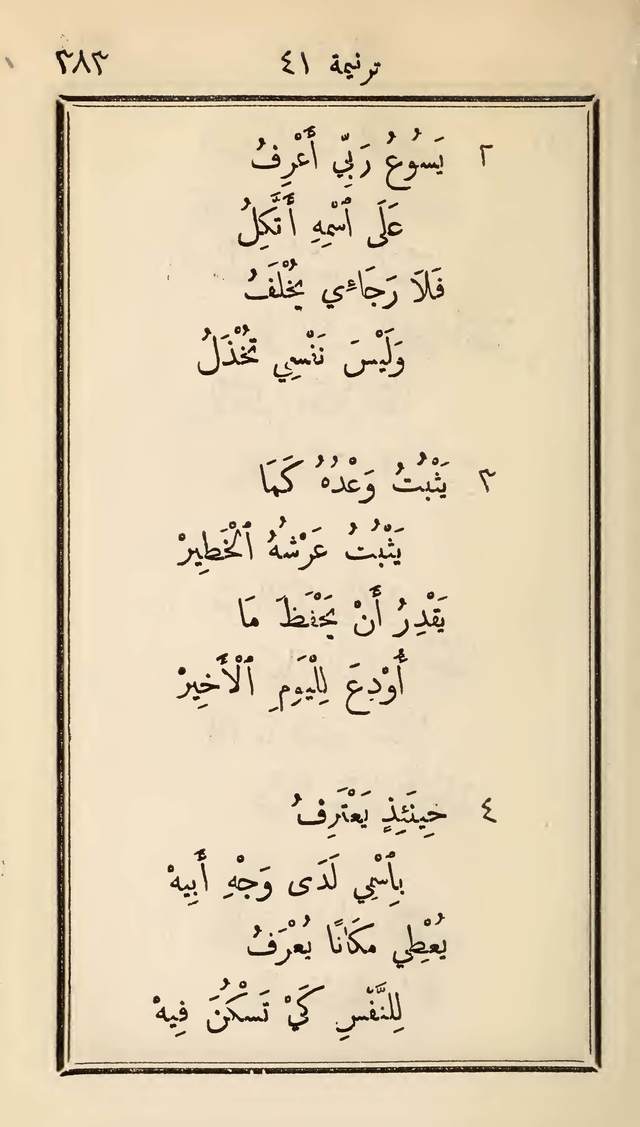 ترنيمة ٤١ ٣٨٣
٢ يَسُوعُ رَبِّي أَعْرِفُ
عَلَى ٱسْمِهِ أَتَّكِلُ
فَلَا رَجَاءِي يُخْلَفُ
وَلَيْسَ نَفْسِي تُخْذَلُ
٣ يَثْبُتُ وَعْدُهُ كَمَا
يَثْبُتُ عَرْشُهُ ٱلْخَطِيرْ
يَقْدِرُ أَنْ يَحْفَظَ مَا
أُوْدِعَ لِلْيَوْمِ ٱلْأَخِيرْ
٤ حِينَئِذٍ يَعْتَرِفُ
بِٱسْمِي لَدَى وَجْهِ أَبِيهْ
يُعْطِي مَكَانًا يُعْرَفُ
لِلنَّفْسِ كَيْ تَسْكُنَ فِيهْ